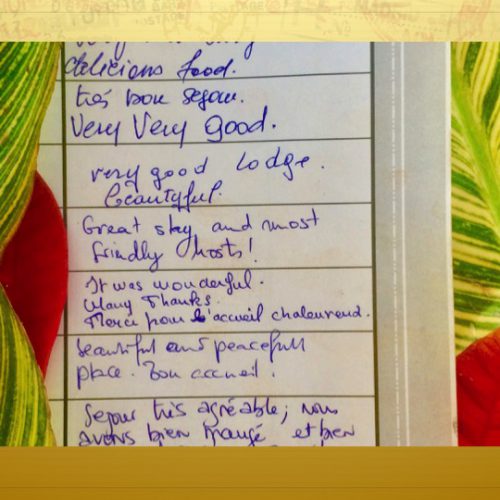 delicious food.
très bon sejour.
Very Very Good.
very good lodge.
beautyful.
Great stay and most
frindly hosts!
It was wonderful.
Many Thanks.
Merci pour l'accueil chaleureud.
beautiful and peacefull
place. Bon accueil.
Sejour très agréable, nous
avons bien mangé et bien